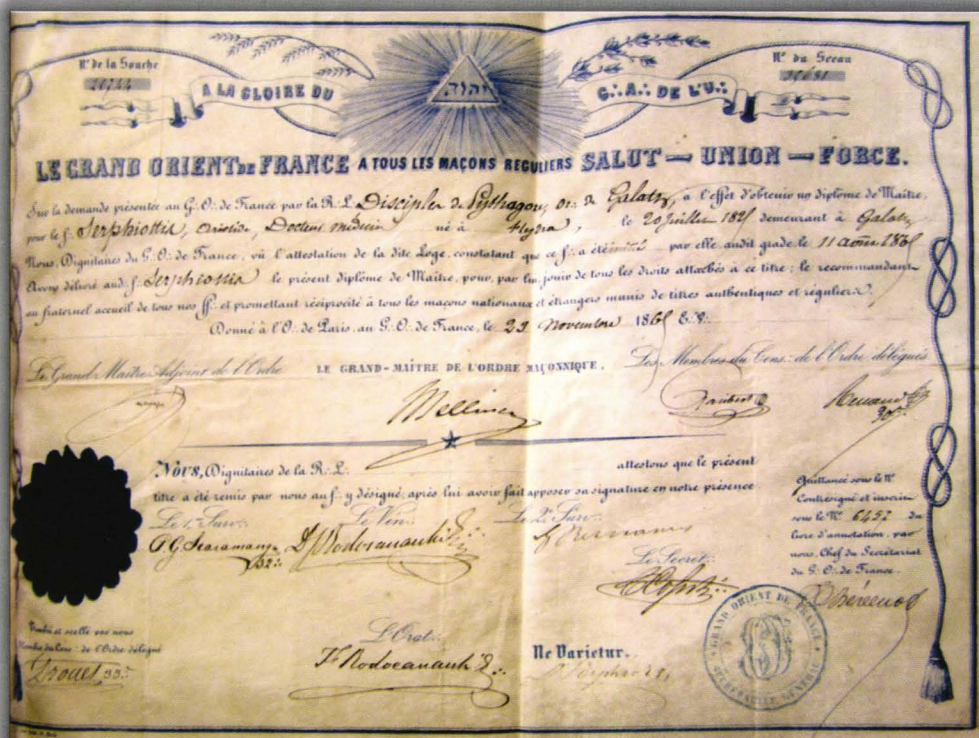 Nº de la Souche
Nº du Sceau
יהוה
A LA GLOIRE DU G∴A∴ DE L'U∴
LE GRAND ORIENT DE FRANCE A TOUS LES MAÇONS REGULIERS SALUT — UNION — FORCE.
Sur la demande présentée au G∴O∴ de France par la R∴L∴ Disciples de Pythagore, Or∴ de Galatz, à l'effet d'obtenir un diplôme de Maître,
pour le f∴ Serphiottis, Aristide, Docteur médecin né à Hydra, le 20 juillet demeurant à Galatz
Nous, Dignitaires du G∴O∴ de France, vu l'attestation de la dite Loge, constatant que ce f∴ a été initié par elle audit grade le 11 août
Avons délivré aud. f∴ Serphiottis le présent diplôme de Maître, pour, par lui, jouir de tous les droits attachés à ce titre; le recommandant
au fraternel accueil de tous nos ff∴ et promettant réciprocité à tous les maçons nationaux et étrangers munis de titres authentiques et réguliers.
Donné à l'O∴ de Paris, au G∴O∴ de France, le 23 Novembre
Le Grand Maître Adjoint de l'Ordre
LE GRAND-MAÎTRE DE L'ORDRE MAÇONNIQUE,
Les Membres du Cons∴ de l'Ordre délégués
Mellinet
NOUS, Dignitaires de la R∴L∴ attestons que le présent
titre a été remis par nous au f∴ y désigné, après lui avoir fait apposer sa signature en notre présence
Le 1er Surv∴ Le Vén∴ Le 2e Surv∴
Rodocanachi
Le Secret∴
Quittancé sous le Nº
Contresigné et inscrit
sous le Nº 6452 du
livre d'annotation, par
nous, Chef du Secrétariat
du G∴O∴ de France.
Timbré et scellé par nous
Membre du Cons∴ de l'Ordre délégué
Drouet 33∴
L'Orat∴
Rodocanachi
Ne Varietur.
GRAND ORIENT DE FRANCE
SECRÉTARIAT GÉNÉRAL